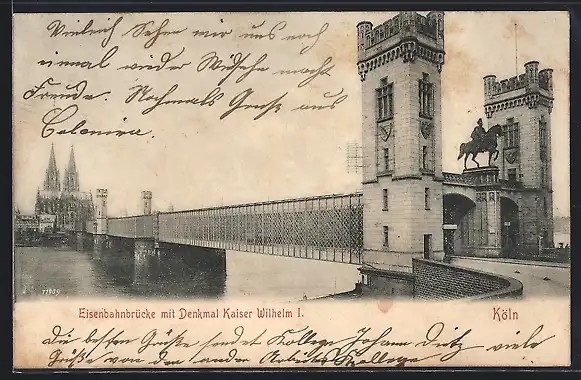 Vielleich Sehn wir uns noch
einmal wieder Wüsche macht
Freude. Nochmals Gruß aus
Colonia.
11909
Eisenbahnbrücke mit Denkmal Kaiser Wilhelm I. Köln
die besten Grüße sendet Kollege Johann Dietz viele
Grüße von den andre Arbeits Kollegen